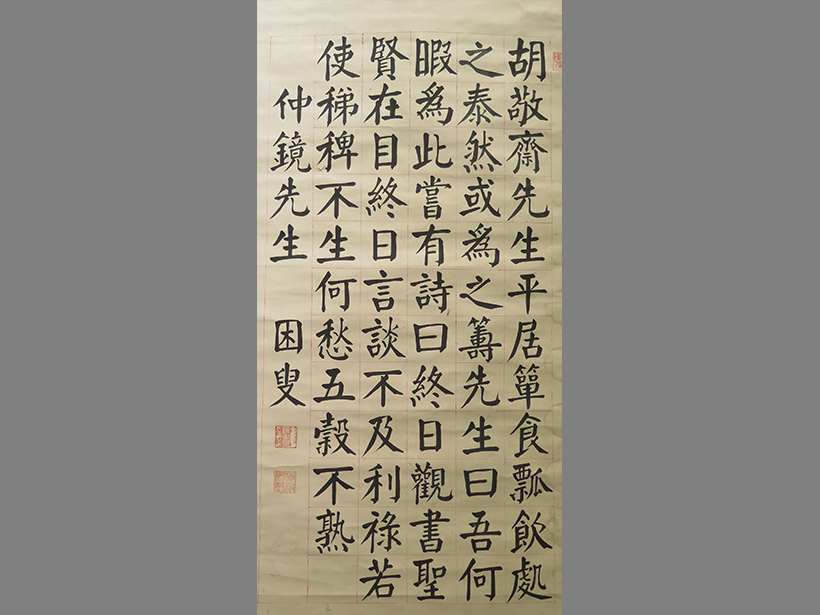 胡敬齋先生平居簞食瓢飲處
之泰然或爲之籌先生曰吾何
暇爲此嘗有詩曰終日觀書聖
賢在目終日言談不及利祿若
使稊稗不生何愁五穀不熟
仲鏡先生 困叟